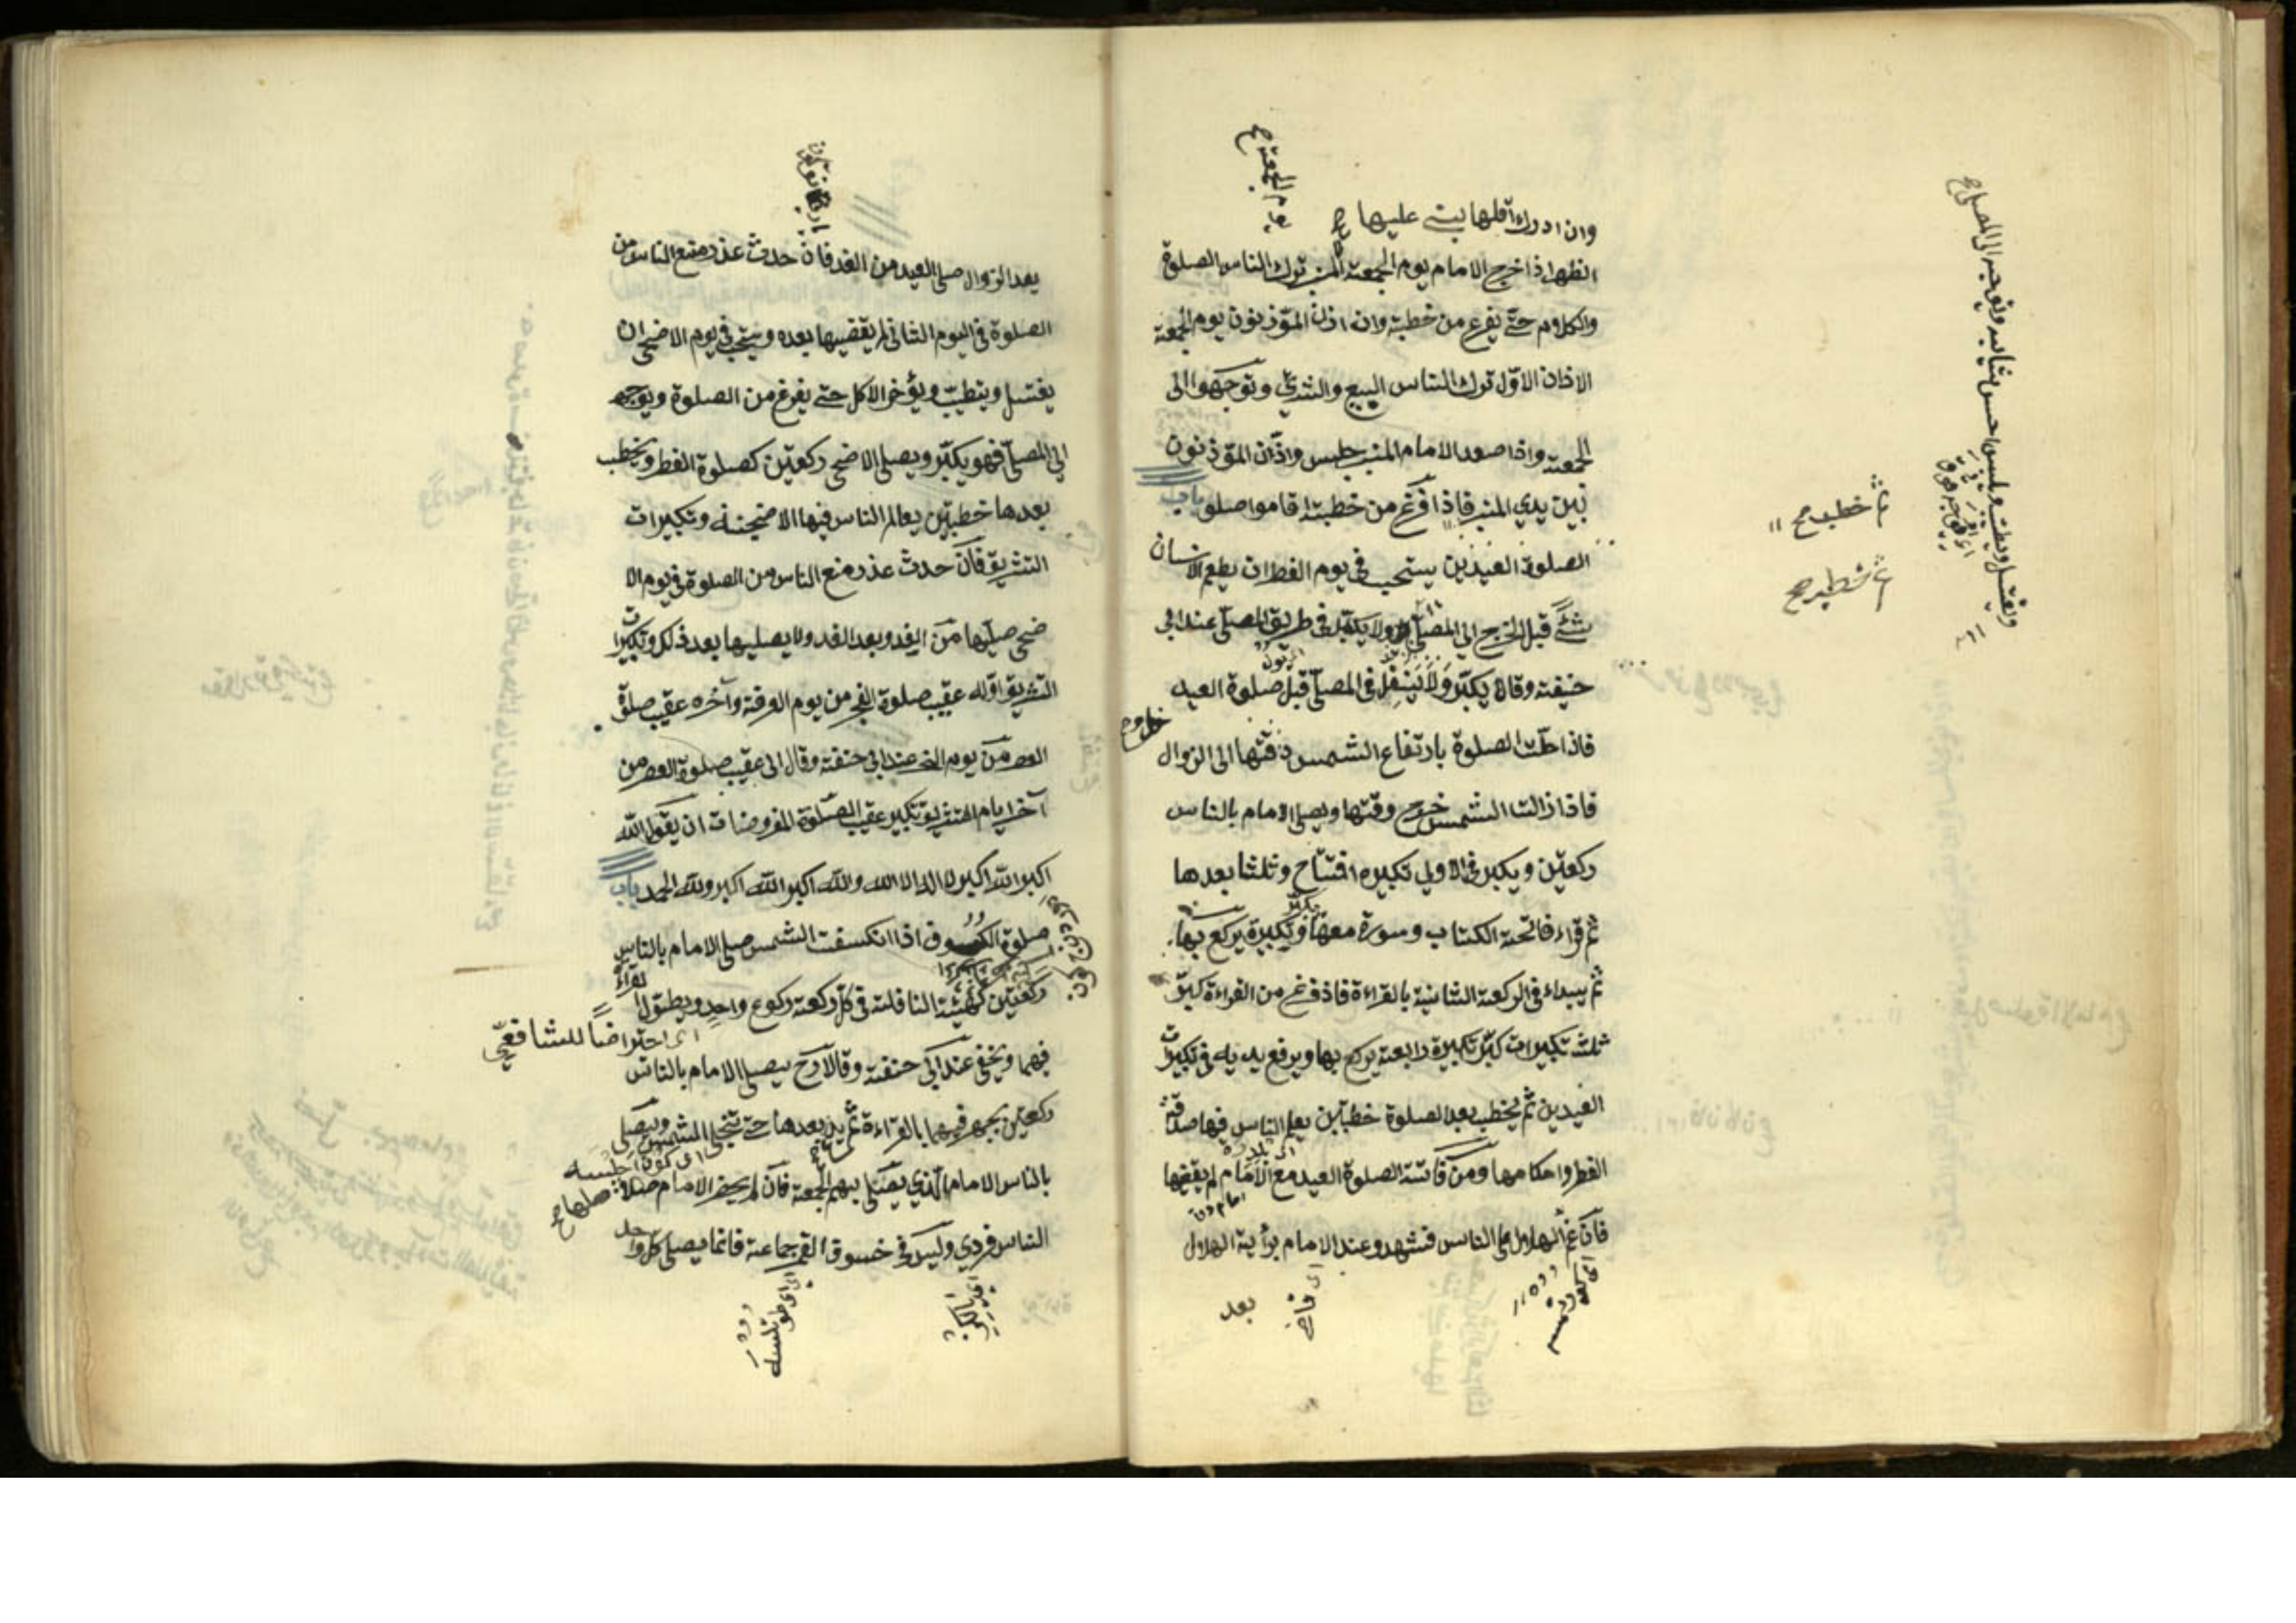 وان ادرك اقلها يبني عليها
الظهر اذا خرج الامام يوم الجمعة ترك الناس الصلوة
والكلام حتى يفرغ من خطبة وان اذن المؤذنون يوم الجمعة
الاذان الاول ترك الناس البيع والشرى وتوجهوا الى
الجمعة واذا صعد الامام المنبر جلس واذن المؤذنون
بين يدي المنبر فاذا فرغ من خطبته اقاموا صلو باب
الصلوة العيدين يستحب في يوم الفطر ان يطعم الانسان
شئ قبل الخرج الي المصلى ولا يكبر في طريق المصلى عند ابي
حنيفة وقالا يكبر ولا يتنفل في المصلى قبل صلوة العيد
فاذا حلت الصلوة بارتفاع الشمس وقتها الى الزوال
فاذا زالت الشمس خرج وقتها ويصلي الامام بالناس
ركعتين ويكبر في الاولي تكبيره افتتاح وثلثا بعدها
ثم قراء فاتحة الكتاب وسورة معها وتكبيرة يركع بها
ثم يبداء في الركعة الثانية بالقراءة فاذ فرغ من القراءة كبر
ثلث تكبيرات كبر تكبيرة رابعة يركع بها ويرفع يديه في تكبيرات
العيدين ثم يخطب بعد الصلوة خطبتين يعلم الناس فيها صدقة
الفطر واحكامها ومن فاتته الصلوة العيد مع الامام لم يقضها
فان غم الهلال على الناس فشهدو عند الامام برأية الهلال
بعد
ويغتسل ويطيب ويلبس احسن ثيابه ويتوجه الى المصلى
يوم الجمعة
بعد الزوال صلى العيد من الغد فان حدث عذر منع الناس من
الصلوة في اليوم الثاني لم يقضيها بعده ويستحب في يوم الاضحى ان
يغتسل ويتطيب ويؤخر الاكل حتى يفرغ من الصلوة ويوجه
الى المصلى فهو يكبر ويصلي الاضحى ركعتين كصلوة الفطر ويخطب
بعدها خطبتين يعالم الناس فيها الاضحية وتكبيرات
التشريق فان حدث عذر منع الناس من الصلوة في يوم الا
ضحى صليها من الغد وبعد الغد ولا يصليها بعد ذلك وتكبيرات
التشريق اوله عقيب صلوة الفجر من يوم العرفة وآخره عقيب صلوة
العصر من يوم النحر عند ابي حنفة وقال الى عقيب صلوة العصر من
آخر ايام التشريق تكبير عقيب الصلوة المفروضات ان يقول الله
اكبر الله اكبر لا اله الا الله والله اكبر الله اكبر ولله الحمد باب
صلوة الكسوف اذا انكسفت الشمس صلى الامام بالناس
ركعتين كهيئة النافلة في كل ركعة ركوع واحد ويطول القراءة
اى احترا ضًا للشافعي
فيهما ويخفى عند ابي حنفة وقالا رح يصلي الامام بالناس
ركعتين يجهر فيهما بالقراءة ثم يد بعدها حتى تنجلي الشمس ويصلي
بالناس الامام الذي يصلي بهم الجمعة فان لم يحضر الامام صلاها
الناس فردي وليس في خسوف القمر جماعة فانما يصلي كل واحد